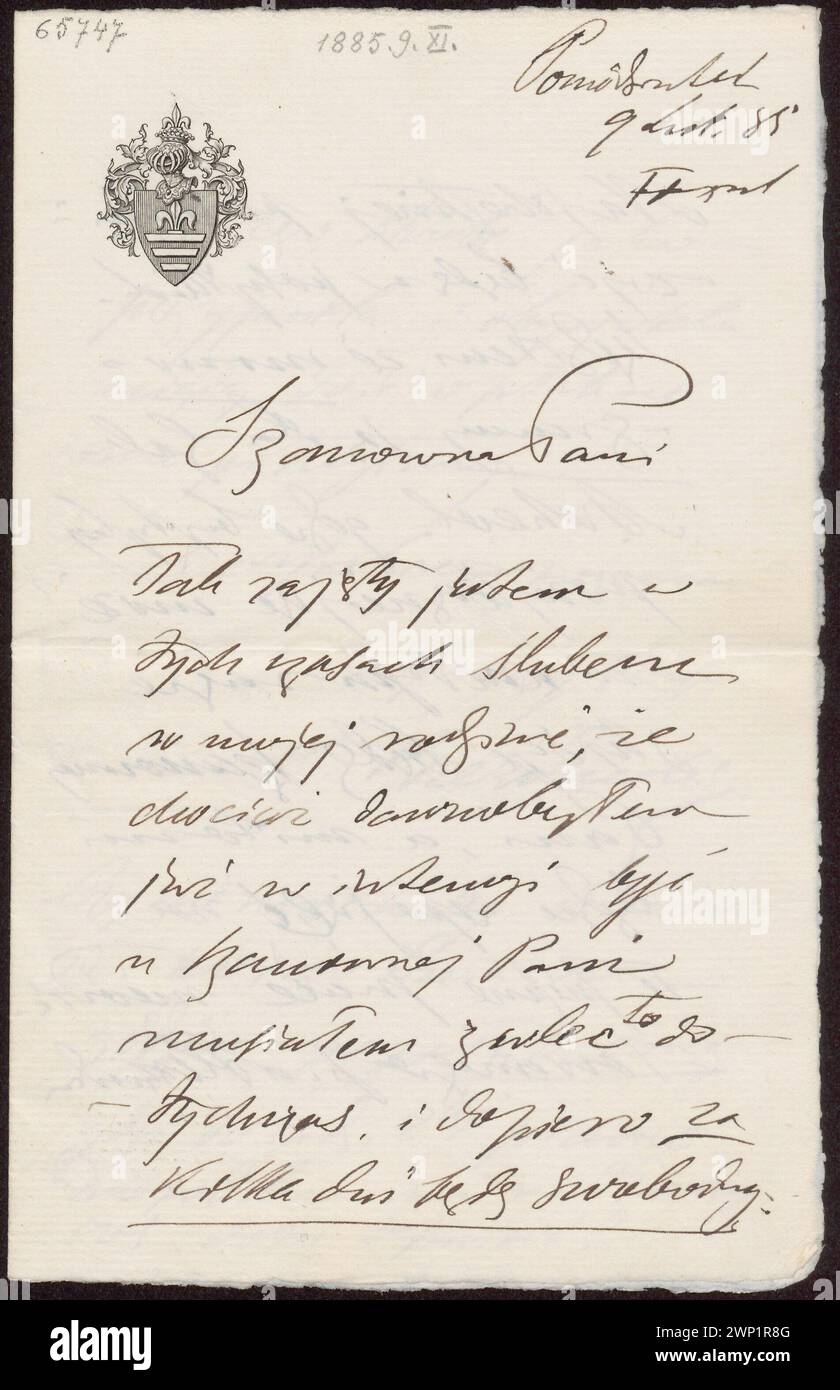 65747
1885.9.XI.
9 List. 85
Szanowna Pani
Tak zajęty jestem w
tych czasach ślubem
w mojej rodzinie, że
chociaż dawno byłem
już w intencyi być
u Szanownej Pani
musiałem zwlec to do-
-tychczas, i dopiero za
kilka dni będę swobodny.
alamy
Image ID: 2WP1R8G
www.alamy.com